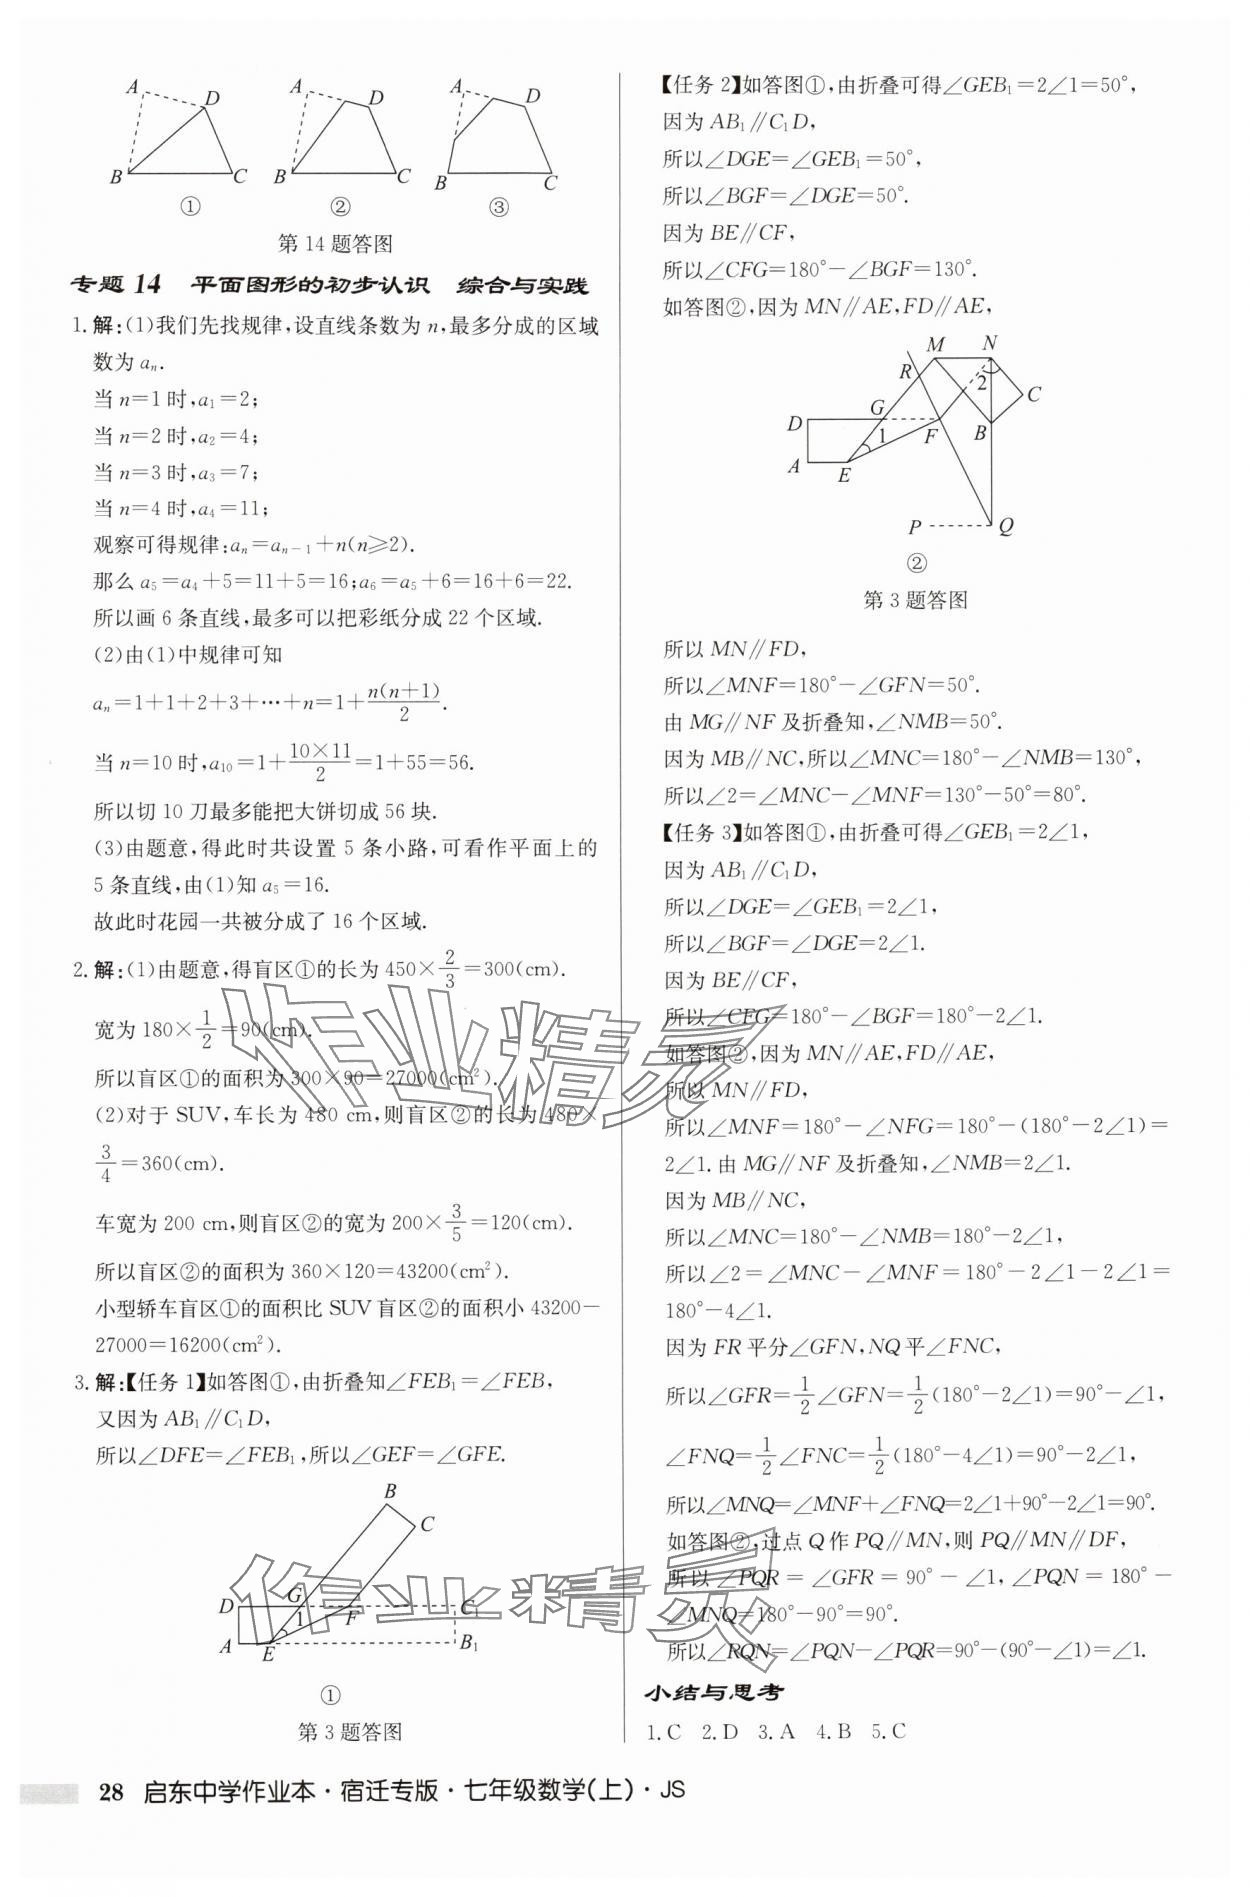 A
D
B
C
①
A
D
B
C
②
A
D
B
C
③
第14题答图
专题14 平面图形的初步认识 综合与实践
1.解:(1)我们先找规律,设直线条数为n,最多分成的区域
数为aₙ.
当n=1时,a₁=2;
当n=2时,a₂=4;
当n=3时,a₃=7;
当n=4时,a₄=11;
观察可得规律:aₙ=aₙ₋₁+n(n≥2).
那么a₅=a₄+5=11+5=16;a₆=a₅+6=16+6=22.
所以画6条直线,最多可以把彩纸分成22个区域.
(2)由(1)中规律可知
aₙ=1+1+2+3+…+n=1+n(n+1)/2.
当n=10时,a₁₀=1+10×11/2=1+55=56.
所以切10刀最多能把大饼切成56块.
(3)由题意,得此时共设置5条小路,可看作平面上的
5条直线,由(1)知a₅=16.
故此时花园一共被分成了16个区域.
2.解:(1)由题意,得盲区①的长为450×2/3=300(cm).
宽为180×1/2=90(cm).
所以盲区①的面积为300×90=27000(cm²).
(2)对于SUV,车长为480 cm,则盲区②的长为480×
3/4=360(cm).
车宽为200 cm,则盲区②的宽为200×3/5=120(cm).
所以盲区②的面积为360×120=43200(cm²).
小型轿车盲区①的面积比SUV盲区②的面积小43200-
27000=16200(cm²).
3.解:【任务1】如答图①,由折叠知∠FEB₁=∠FEB,
又因为AB₁∥C₁D,
所以∠DFE=∠FEB₁,所以∠GEF=∠GFE.
B
C
D
G
1
F
C₁
A
E
B₁
①
第3题答图
【任务2】如答图①,由折叠可得∠GEB₁=2∠1=50°,
因为AB₁∥C₁D,
所以∠DGE=∠GEB₁=50°,
所以∠BGF=∠DGE=50°.
因为BE∥CF,
所以∠CFG=180°-∠BGF=130°.
如答图②,因为MN∥AE,FD∥AE,
M
N
R
2
C
D
G
1
F
B
A
E
P
Q
②
第3题答图
所以MN∥FD,
所以∠MNF=180°-∠GFN=50°.
由MG∥NF及折叠知,∠NMB=50°.
因为MB∥NC,所以∠MNC=180°-∠NMB=130°,
所以∠2=∠MNC-∠MNF=130°-50°=80°.
【任务3】如答图①,由折叠可得∠GEB₁=2∠1,
因为AB₁∥C₁D,
所以∠DGE=∠GEB₁=2∠1,
所以∠BGF=∠DGE=2∠1.
因为BE∥CF,
所以∠CFG=180°-∠BGF=180°-2∠1.
如答图②,因为MN∥AE,FD∥AE,
所以MN∥FD,
所以∠MNF=180°-∠NFG=180°-(180°-2∠1)=
2∠1.由MG∥NF及折叠知,∠NMB=2∠1.
因为MB∥NC,
所以∠MNC=180°-∠NMB=180°-2∠1,
所以∠2=∠MNC-∠MNF=180°-2∠1-2∠1=
180°-4∠1.
因为FR平分∠GFN,NQ平∠FNC,
所以∠GFR=1/2∠GFN=1/2(180°-2∠1)=90°-∠1,
∠FNQ=1/2∠FNC=1/2(180°-4∠1)=90°-2∠1,
所以∠MNQ=∠MNF+∠FNQ=2∠1+90°-2∠1=90°.
如答图②,过点Q作PQ∥MN,则PQ∥MN∥DF,
所以∠PQR=∠GFR=90°-∠1,∠PQN=180°-
∠MNQ=180°-90°=90°.
所以∠RQN=∠PQN-∠PQR=90°-(90°-∠1)=∠1.
小结与思考
1.C 2.D 3.A 4.B 5.C
作业精灵
作业精灵
28 启东中学作业本·宿迁专版·七年级数学(上)·JS